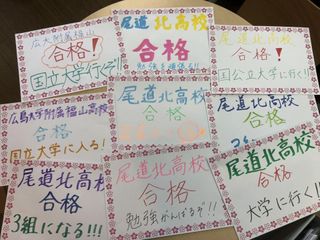 広大附属福山
合格!
国立大学行くぞ!!
尾道北高校
合格
勉強を頑張る!!
尾道北高校
合格!
国公立大学に行く!!
広島大学附属福山高校
合格
国立大学に入る!
尾道北高校
合格
尾道北高校
合格
尾道北高校
合格
3組になる!!!
尾道北高校
合格
勉強がんばるぞ!!
尾道北高校
合格
大学に行く!!